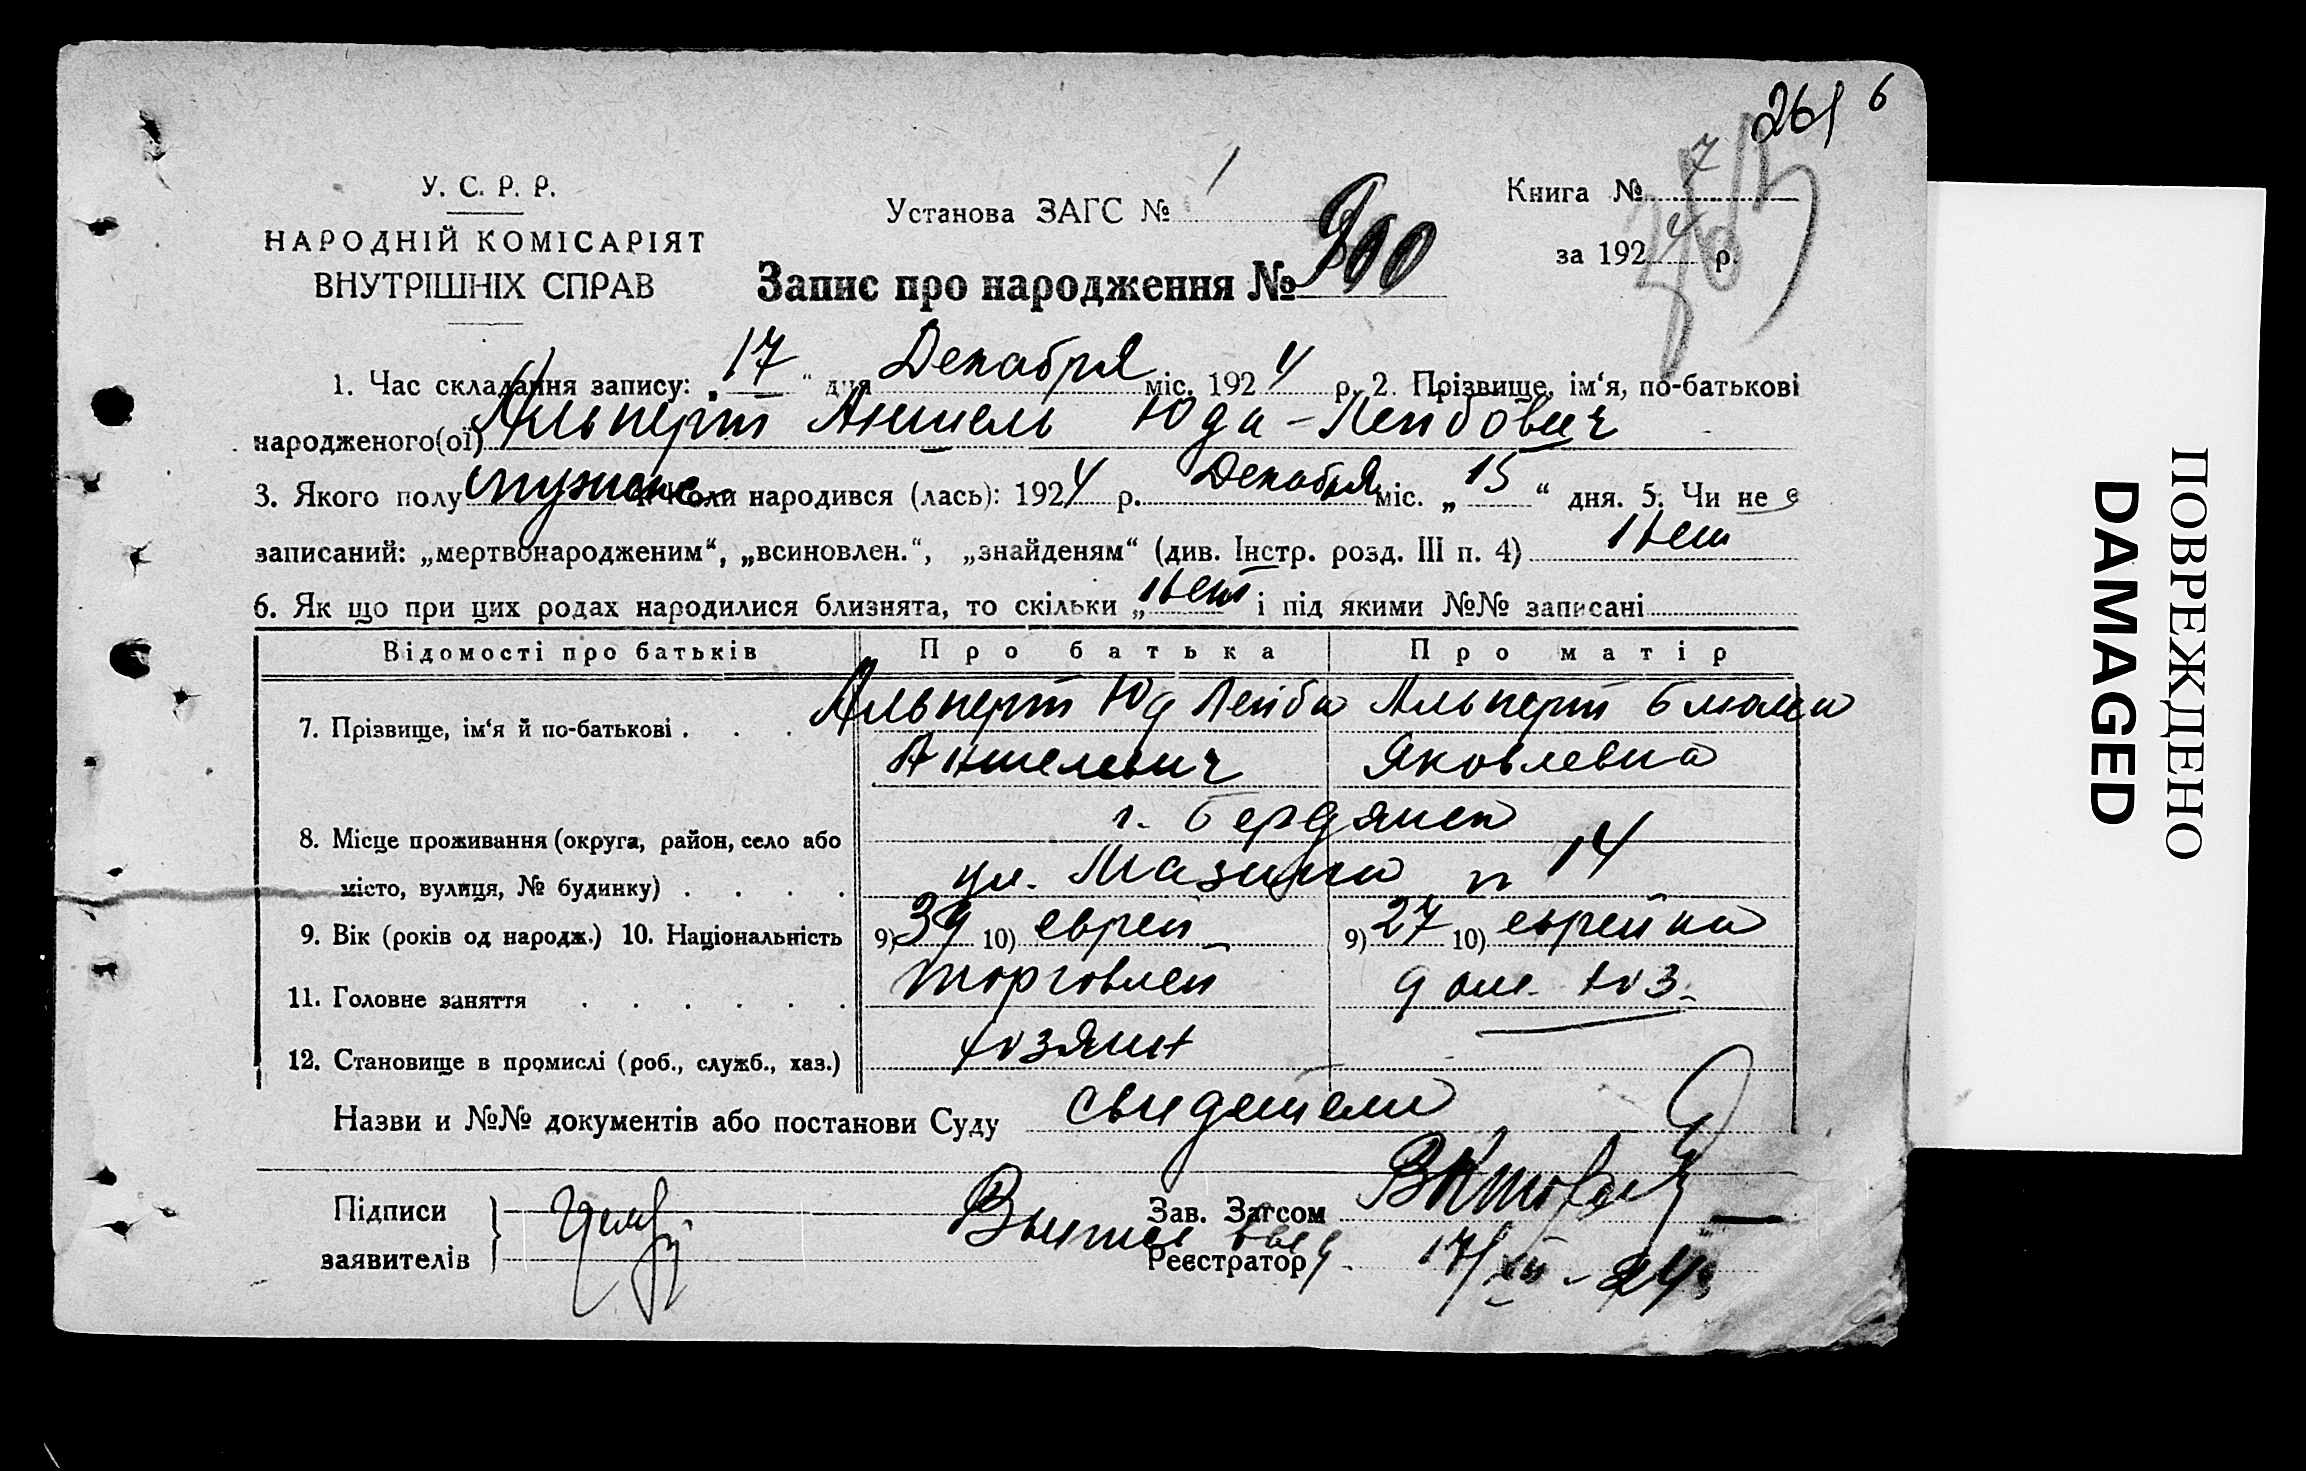 261 6
У. С. Р. Р.
НАРОДНІЙ КОМІСАРІЯТ
ВНУТРІШНІХ СПРАВ
Установа ЗАГС № 1
Книга № 7
за 1924 р.
Запис про народження № 900
1. Час складання запису: „17“ дня Декабря міс. 1924 р. 2. Прізвище, ім‘я, по-батькові
народженого(ої) Альперт Аншель Юда-Лейбович
3. Якого полу мужск 4. Коли народився (лась): 1924 р. Декабря міс. „15“ дня. 5. Чи не є
записаний: „мертвонародженим“, „всиновлен.“, „знайденям“ (див. Інстр. розд. III п. 4) Нет
6. Як що при цих родах народилися близнята, то скільки „Нет і під якими №№ записані
Відомості про батьків Про батька Про матір
7. Прізвище, ім‘я й по-батькові . . . Альперт Юд Лейба Альперт Блюма
Аншелевич Яковлевна
г. Бердянск
8. Місце проживання (округа, район, село або
місто, вулиця, № будинку) . . . . ул. Мазина n 14
9. Вік (років од народж.) 10. Національність 9) 39 10) еврей 9) 27 10) еврейка
11. Головне заняття . . . . . . торговлей дом. хоз.
12. Становище в промислі (роб., служб., хаз.) хозяин
Назви и №№ документів або постанови Суду свидетели
Підписи
заявителів
Зав. Загсом
Реєстратор
17/XII-24
ПОВРЕЖДЕНО
DAMAGED